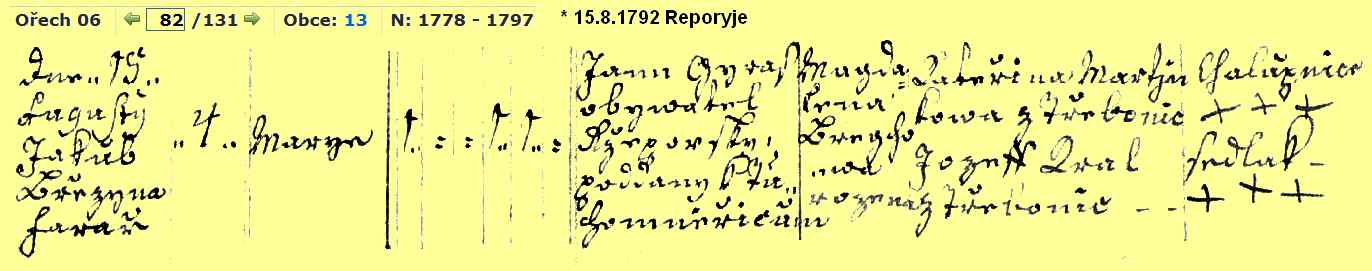 Ořech 06 82 /131 Obce: 13 N: 1778 - 1797 * 15.8.1792 Reporyje
dne 15
Augusty
Jakub
Březyna
farař
4
Marye
1 = = 1 1 =
Jann Gyras
obywatel
Ržeporsky
poddany k Tu
chomněřicum
Magda
lena
rozena
Kateřina Martin
kowa z Třebonic
Jozeff Kral
z Třebonic
Chalupnice
+ + +
sedlak
+ + +